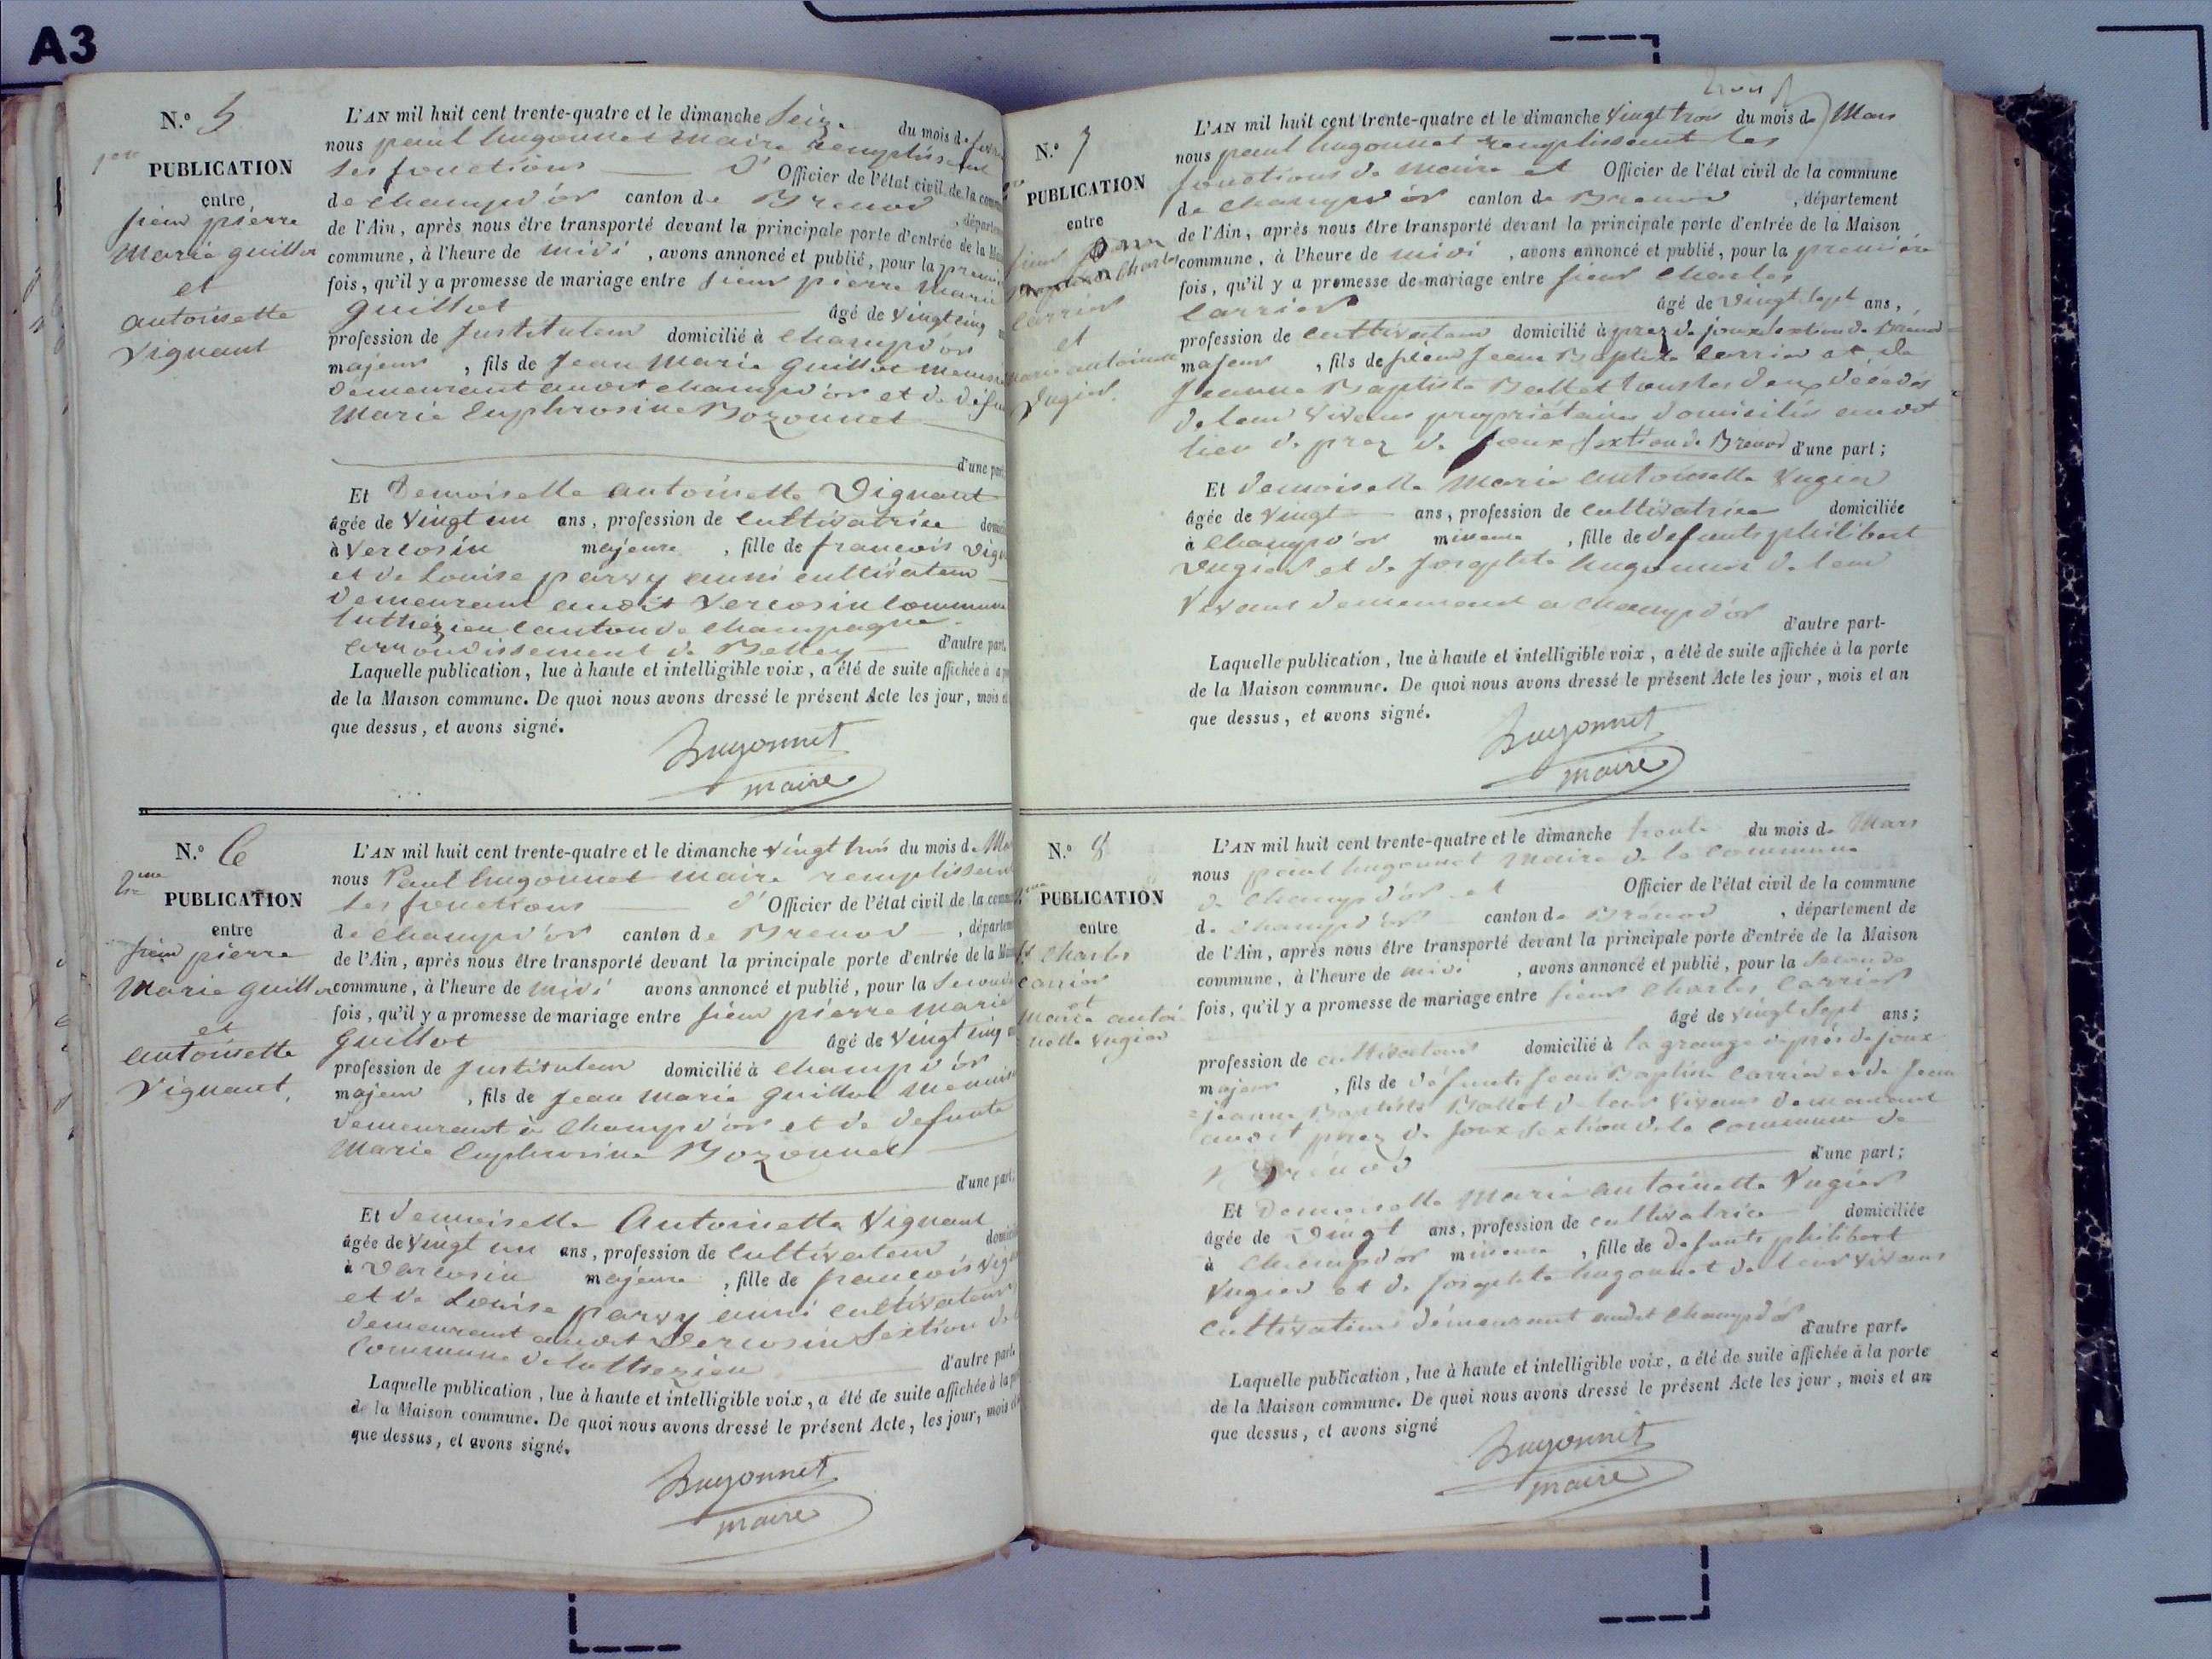 A3
N.º 5
1ère
PUBLICATION
entre
sieur pierre
Marie guillot
et
antoinette
Vignant
L'AN mil huit cent trente-quatre et le dimanche Seize du mois de
nous paul hugonnet maire remplissant
les fonctions d' Officier de l'état civil de la
de champd'or canton de Brenod , département
de l'Ain, après nous être transporté devant la principale porte d'entrée de la
commune, à l'heure de midi , avons annoncé et publié, pour la
fois, qu'il y a promesse de mariage entre sieur pierre marie
guillot âgé de vingt cinq
profession de Instituteur domicilié à champd'or
majeur , fils de Jean Marie guillot
demeurant audit champd'or et de
Marie Euphrosine Bozonnet
d'une part
Et Demoiselle antoinette Vignant
âgée de vingt un ans, profession de cultivatrice
à Vercosin majeure , fille de françois
et de Louise parvy aussi cultivateur
demeurant audit Vercosin commune
luthézieu canton de champagne
arrondissement de Belley d'autre part.
Laquelle publication, lue à haute et intelligible voix, a été de suite affichée à
de la Maison commune. De quoi nous avons dressé le présent Acte les jour, mois
que dessus, et avons signé.
hugonnet
maire
N.º 6
2me
PUBLICATION
entre
sieur pierre
Marie guillot
et
antoinette
Vignant.
L'AN mil huit cent trente-quatre et le dimanche vingt trois du mois de
nous Paul hugonnet maire remplissant
les fonctions d' Officier de l'état civil de la
de champd'or canton de Brenod , département
de l'Ain, après nous être transporté devant la principale porte d'entrée de la
commune, à l'heure de midi avons annoncé et publié, pour la seconde
fois, qu'il y a promesse de mariage entre sieur pierre marie
guillot âgé de vingt cinq
profession de Instituteur domicilié à champd'or
majeur , fils de Jean Marie guillot
demeurant à champd'or et de defunte
Marie Euphrosine Bozonnet
d'une part,
Et demoiselle Antoinette Vignant
âgée de vingt un ans, profession de cultivateur
à Vercosin majeure , fille de françois
et de Louise parvy aussi cultivateurs
demeurant audit Vercosin Sextion de
commune de luthezieu
d'autre part.
Laquelle publication, lue à haute et intelligible voix, a été de suite affichée à la
de la Maison commune. De quoi nous avons dressé le présent Acte, les jour, mois
que dessus, et avons signé.
hugonnet
maire
N.º 7
PUBLICATION
entre
sieur
Charles
Carrier
et
marie antoinette
Vugier.
L'AN mil huit cent trente-quatre et le dimanche vingt trois du mois de Mars
nous paul hugonnet remplissant les
fonctions de maire et Officier de l'état civil de la commune
de champd'or canton de Brenod , département
de l'Ain, après nous être transporté devant la principale porte d'entrée de la Maison
commune, à l'heure de midi , avons annoncé et publié, pour la première
fois, qu'il y a promesse de mariage entre sieur Charles
Carrier âgé de vingt sept ans,
profession de cultivateur domicilié à prez de joux sextion de Brénod
majeur , fils de sieur Jean Baptiste Carrier et de
Jeanne Baptiste Ballet tous les deux décédés
de leur vivans propriétaires domiciliés audit
lieu de prez de joux sextion de Brenod d'une part;
Et demoiselle Marie antoinette Vugier
âgée de vingt ans, profession de cultivatrice domiciliée
à champd'or mineure , fille de defunts philibert
Vugier et de Josephte hugonnet de leur
vivans demeurant à champd'or
d'autre part-
Laquelle publication, lue à haute et intelligible voix, a été de suite affichée à la porte
de la Maison commune. De quoi nous avons dressé le présent Acte les jour, mois et an
que dessus, et avons signé.
hugonnet
maire
N.º 8
PUBLICATION
entre
Charles
Carrier
et
Marie antoi
nette Vugier
L'AN mil huit cent trente-quatre et le dimanche trente du mois de Mars
nous paul hugonnet Maire de la Commune
de champd'or et Officier de l'état civil de la commune
de champd'or canton de Brénod , département de
de l'Ain, après nous être transporté devant la principale porte d'entrée de la Maison
commune, à l'heure de midi , avons annoncé et publié, pour la seconde
fois, qu'il y a promesse de mariage entre sieur Charles Carrier
âgé de vingt sept ans;
profession de cultivateur domicilié à la grange de prés de joux
majeur , fils de défunts Jean Baptiste Carrier et de Jean
Jeanne Baptiste Ballet de leur vivans demeurant
audit prez de Joux sextion de la commune de
Brénod d'une part;
Et Demoiselle Marie antoinette Vugier
âgée de Vingt ans, profession de cultivatrice domiciliée
à Champd'or mineure , fille de defunts philibert
Vugier et de Josephte hugonnet de leur vivans
cultivateurs demeurant audit champd'or d'autre part.
Laquelle publication, lue à haute et intelligible voix, a été de suite affichée à la porte
de la Maison commune. De quoi nous avons dressé le présent Acte les jour, mois et an
que dessus, et avons signé
hugonnet
maire